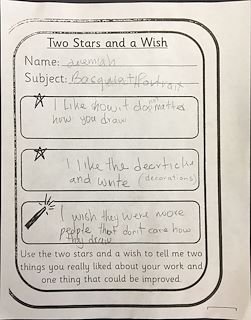 Two Stars and a Wish
Name: Jeremiah
Subject: Basquiat/Portrait
I like how it do not matter
how you draw
I like the deortichs
and write (decorations)
I wish they were more
people that don't care how
they draw
Use the two stars and a wish to tell me two
things you really liked about your work and
one thing that could be improved.